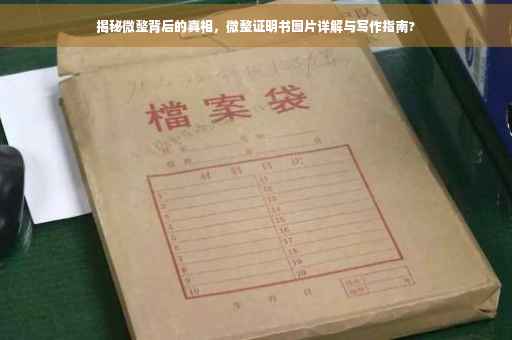 揭秘微整背后的真相，微整证明书图片详解与写作指南?
檔案袋
材料目次
1 11
2 12
3 13
4 14
5 15
6 16
7 17
8 18
9 19
10 20
年 月 日